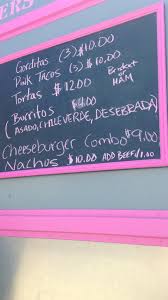 ERS
Gorditas (3) $10.00
Pork Tacos (5) $10.00
Tortas $12.00
or HAM
Burritos
(ASADO, CHILE VERDE, DESEBRADA)
Cheeseburger Combo $9.00
Nachos $10.00 ADD BEEF/1.00